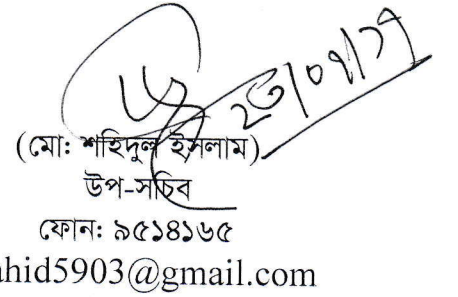 ২৩/০৭/১৭
(মো: শহিদুল ইসলাম)
উপ-সচিব
ফোন: ৯৫১৪১৬৫
ahid5903@gmail.com